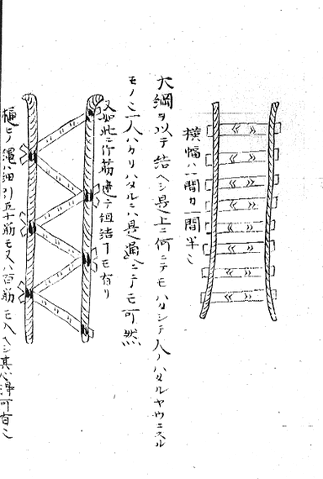 横幅ハ一間カ一間半シ
大綱ヲ以テ結ヘシ是上ニ何ニテモハサシテ人ノハタルヤウニスル
モノシ一人ハカリハタルニハ是通ニテモ可然
又如此ニ行筋違テ組結フモ有リ
樋ヒノ濡ハ細引五十筋モ又ハ百筋モ入ヘシ其心得可有シ